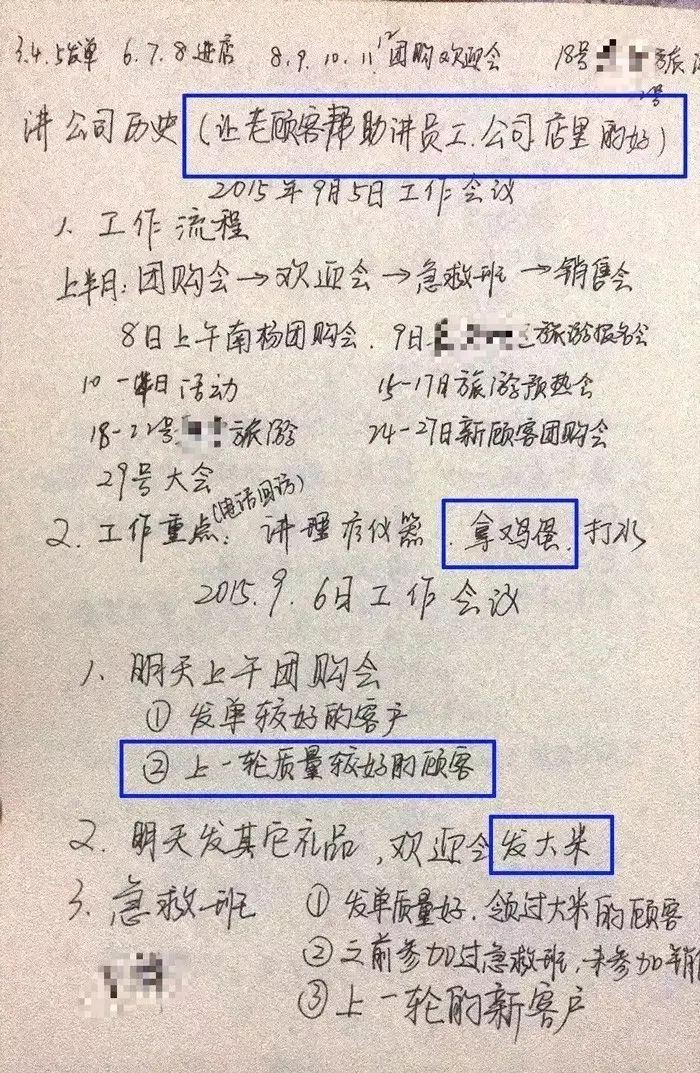 3.4.5发单 6.7.8进店 8.9.10.11.12团购欢迎会 18号 旅游
讲公司历史(让老顾客帮助讲员工.公司店里的好)
2015年9月5日工作会议
1、工作流程
上半月:团购会→欢迎会→急救班→销售会
8日上午南杨团购会. 9日 旅游报名会
10- 日活动 15-17日旅游预热会
18-22号 旅游 24-27日新顾客团购会
29号大会
(电话回访)
2、工作重点:讲理疗仪器.拿鸡蛋.打水
2015.9.6日工作会议
1、明天上午团购会
①发单较好的客户
②上一轮质量较好的顾客
2、明天发其它礼品,欢迎会发大米
3、急救班 ①发单质量好.领过大米的顾客
②之前参加过急救班,未参加销
③上一轮的新客户